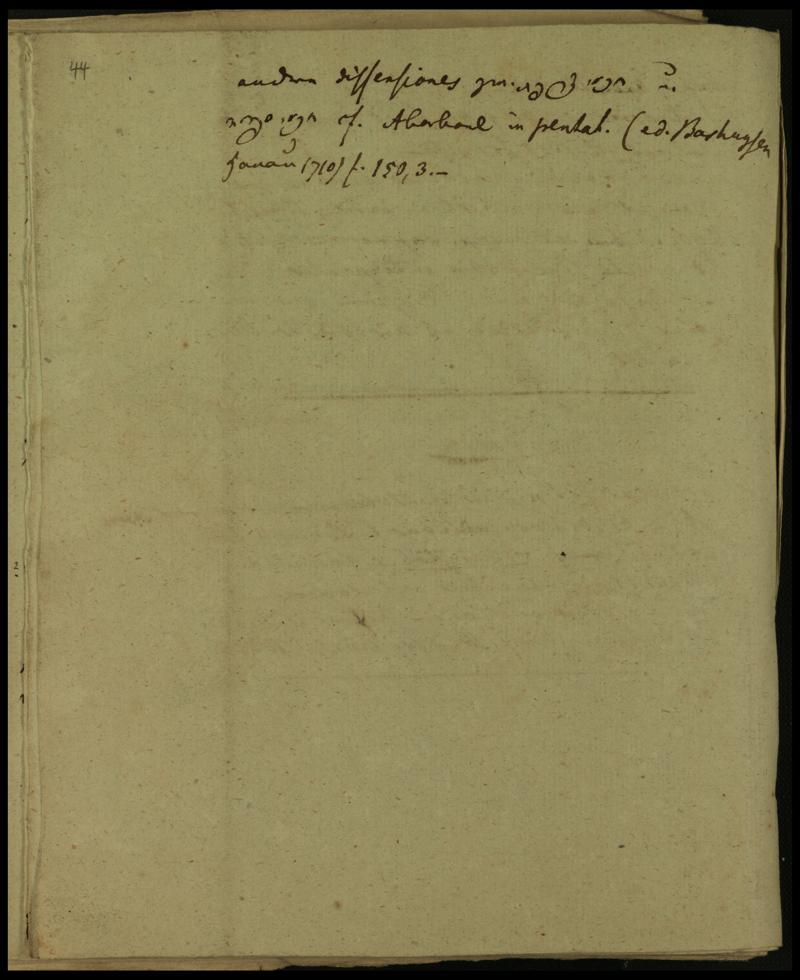 44
andern dissensiones חכמי u.
חכמי cf. Abarbanel in pentat. (ed. Bashuysen
Hanau 1710) f. 150, 3.—